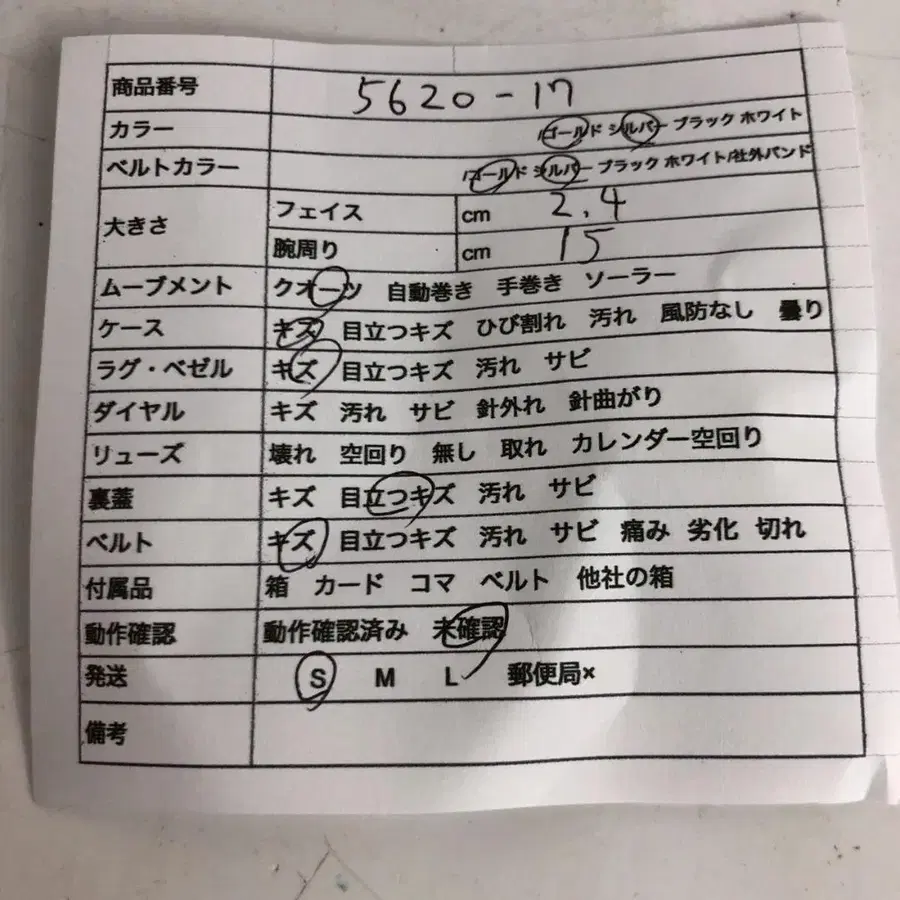 商品番号 5620-17
カラー /ゴールド シルバー ブラック ホワイト
ベルトカラー /ゴールド シルバー ブラック ホワイト/社外バンド
大きさ フェイス cm 2.4
腕周り cm 15
ムーブメント クオーツ 自動巻き 手巻き ソーラー
ケース キズ 目立つキズ ひび割れ 汚れ 風防なし 曇り
ラグ・ベゼル キズ 目立つキズ 汚れ サビ
ダイヤル キズ 汚れ サビ 針外れ 針曲がり
リューズ 壊れ 空回り 無し 取れ カレンダー空回り
裏蓋 キズ 目立つキズ 汚れ サビ
ベルト キズ 目立つキズ 汚れ サビ 痛み 劣化 切れ
付属品 箱 カード コマ ベルト 他社の箱
動作確認 動作確認済み 未確認
発送 S M L 郵便局×
備考